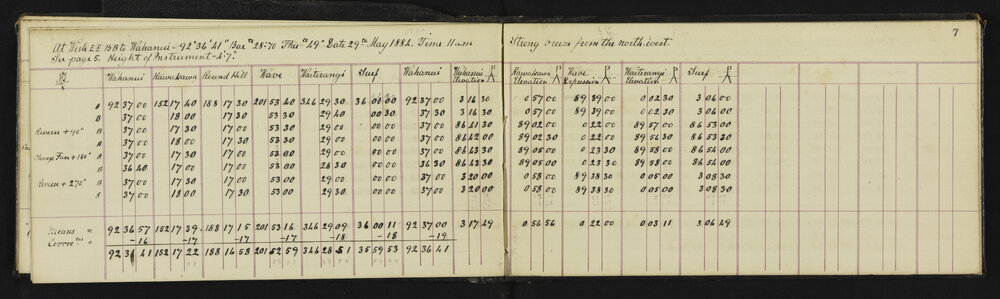 7
At Wish EE BB to Wahanui - 92° 36' 41" Bar 28.70 Ther 49° Date 29th May 1882. Time 11 am Strong breeze from the north west.
See page 5. Height of Instrument = 4.7
Wahanui Kaiwasawa Round Hill Wave Waiterangi Surf Wahanui Wahanui Elevation Kaiwasawa Elevation Wave Depression Waiterangi Elevation Surf
A 92 37 00 152 17 40 188 17 30 201 53 40 346 29 30 36 01 00 92 37 00 3 16 30 0 57 00 89 39 00 0 02 30 3 06 00
B 37 00 18 00 17 30 53 30 29 40 00 30 37 30 3 16 30 0 57 00 89 39 00 0 02 30 3 06 00
Reverse + 90° B 37 00 17 30 17 30 53 30 29 00 00 00 37 00 86 41 30 89 02 00 0 22 00 89 57 00 86 53 00
A 37 00 18 00 17 30 53 30 29 00 00 00 37 00 86 42 00 89 02 30 0 22 00 89 56 30 86 53 30
Change Face + 180° A 37 00 17 30 17 00 53 00 29 00 00 00 37 00 86 43 30 89 05 00 0 23 30 89 58 00 86 54 00
B 36 40 17 00 17 00 53 00 28 30 00 00 36 30 86 43 30 89 05 00 0 23 30 89 58 00 86 54 00
Reverse + 270° B 37 00 17 30 17 00 53 00 29 00 00 00 37 00 3 20 00 0 58 00 89 38 30 0 05 00 3 08 30
A 37 00 18 00 17 30 53 00 29 30 00 00 37 00 3 20 00 0 58 00 89 38 30 0 05 00 3 08 30
Means = 92 36 57 152 17 39 188 17 15 201 53 16 346 29 09 36 00 11 92 37 00 3 17 49 0 56 56 0 22 00 0 03 11 3 06 49
Correctns = -16 -17 -17 -17 -18 -18 -19
92 36 41 152 17 22 188 16 58 201 52 59 346 28 51 35 59 53 92 36 41